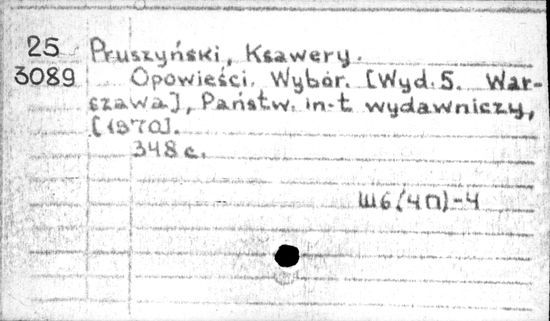 25
3089
Pruszyński, Ksawery.
Opowieści. Wybór. [Wyd. 5. War-
szawa], Państw. in-t wydawniczy,
[1970].
348 c.
Ш6(4П)-4